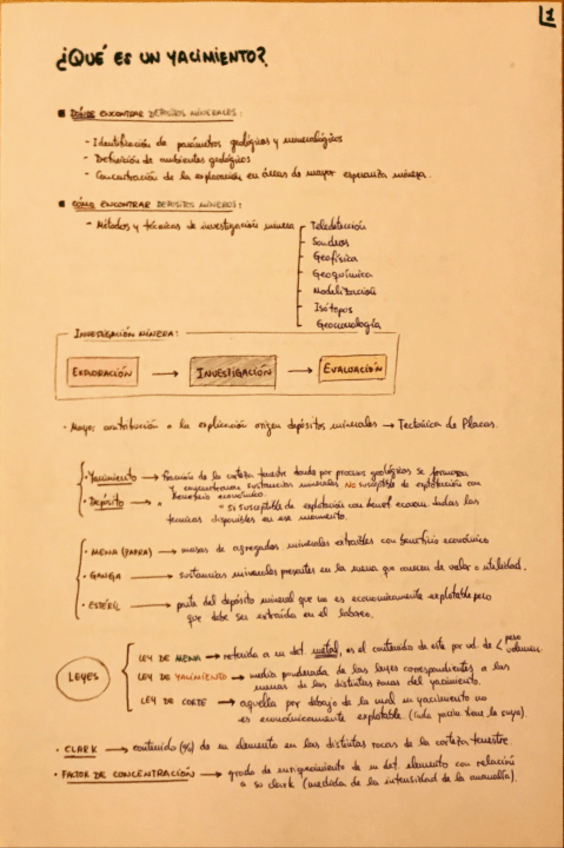 1
¿QUÉ ES UN YACIMIENTO?
■ DÓNDE ENCONTRAR DEPÓSITOS MINERALES:
- Identificación de parámetros geológicos y mineralógicos
- Definición de ambientes geológicos
- Concentración de la exploración en áreas de mayor esperanza minera.
■ CÓMO ENCONTRAR DEPÓSITOS MINEROS:
- Métodos y técnicas de investigación minera
Teledetección
Sondeos
Geofísica
Geoquímica
Modelización
Isótopos
Geocronología
INVESTIGACIÓN MINERA:
EXPLORACIÓN → INVESTIGACIÓN → EVALUACIÓN
· Mayor contribución a la explicación origen depósitos minerales → Tectónica de Placas.
· Yacimiento → fracción de la corteza terrestre donde por procesos geológicos se formaron
y concentraron sustancias minerales NO susceptible de explotación con
beneficio económico.
· Depósito → " = SI susceptible de explotación con benef. econom. dadas las
técnicas disponibles en ese momento.
· MENA (PARRA) → masas de agregados minerales extraibles con beneficio económico
· GANGA → sustancias minerales presentes en la mena que carecen de valor o utilidad.
· ESTÉRIL → parte del depósito mineral que no es economicamente explotable pero
que debe ser extraída en el laboreo.
LEYES
LEY DE MENA → referida a un det. metal, es el contenido de este por ud. de < peso
volumen.
LEY DE YACIMIENTO → media ponderada de las leyes correspondientes a las
menas de las distintas zonas del yacimiento.
LEY DE CORTE → aquella por debajo de la cual un yacimiento no
es económicamente explotable. (Cada yacim. tiene la suya).
· CLARK → contenido (%) de un elemento en las distintas rocas de la corteza terrestre.
· FACTOR DE CONCENTRACIÓN → grado de enriquecimiento de un det. elemento con relación
a su clark (medida de la intensidad de la anomalía).